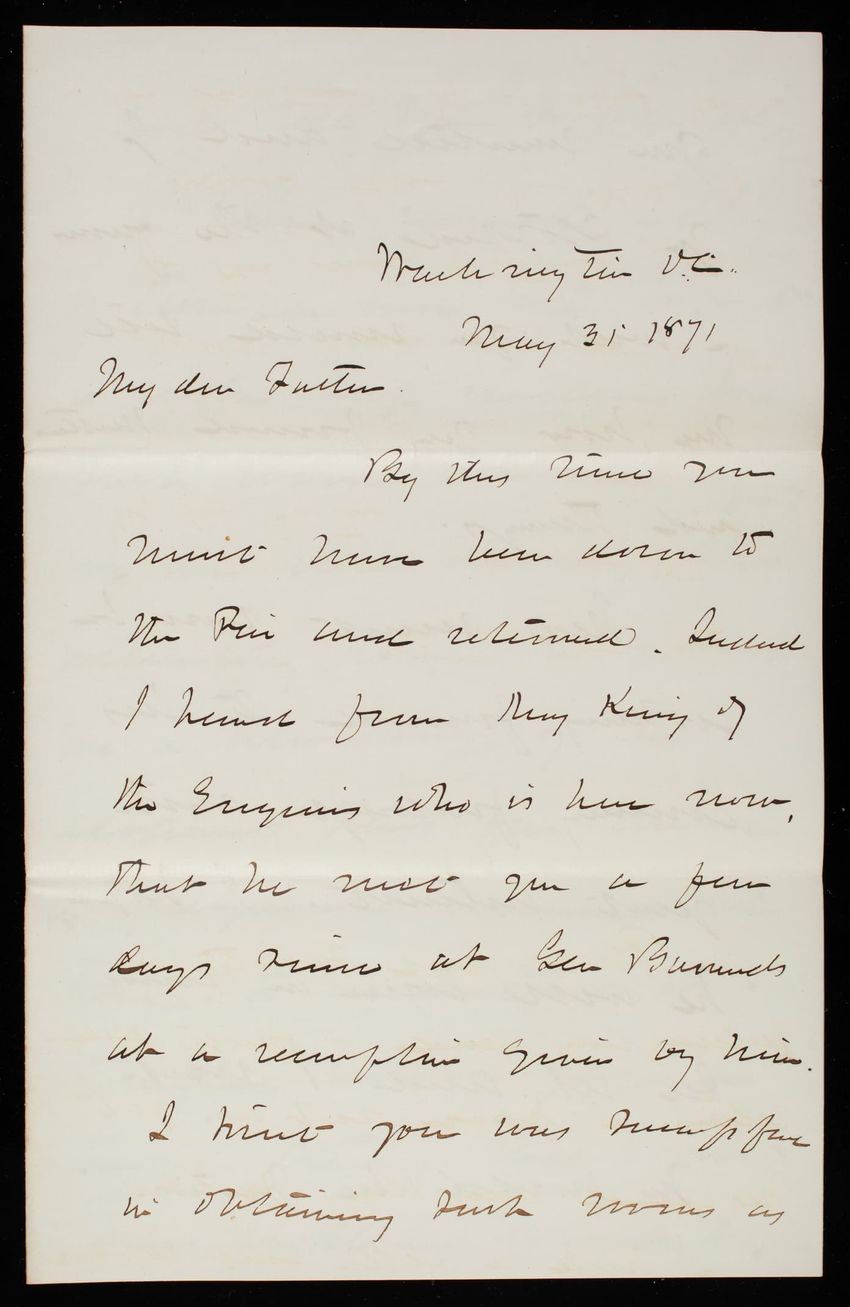 Washington D.C.
May 31 1871
My dear Father.
By this time you
must have been down to
the Pier and returned. Indeed
I heard from Maj King of
the Engineers who is here now,
that he met you a few
days since at Gen Barnards
at a reception given by him.
I trust you was successful
in obtaining such rooms as